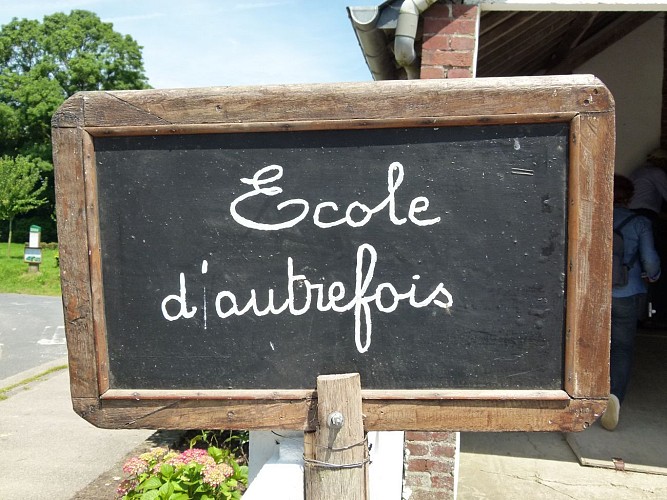 Ecole
d'autrefois